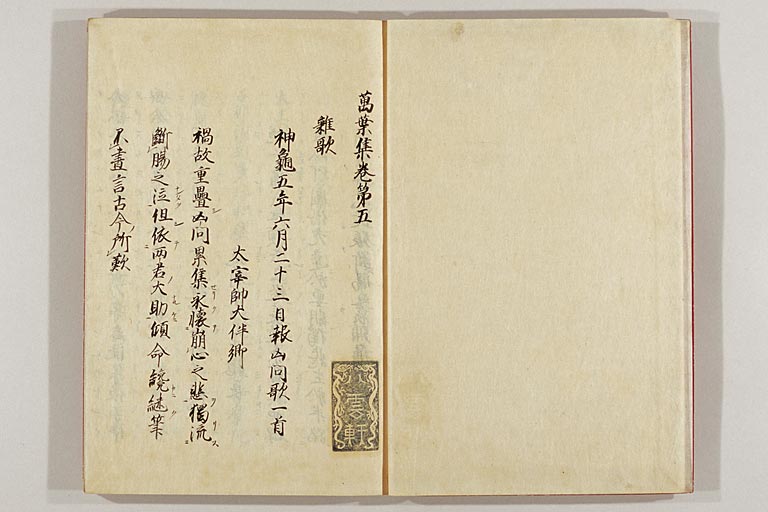 萬葉集卷第五
雜歌
神龜五年六月二十三日報凶問歌一首
太宰帥大伴卿
禍故重疊凶問累集永懷崩心之悲獨流
斷腸之泣但依兩君大助傾命纔継筆
不盡言古今所歎